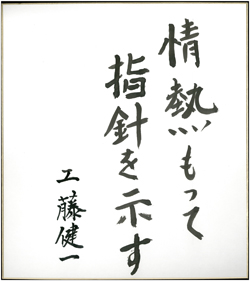 情熱もって
指針を示す
工藤健一